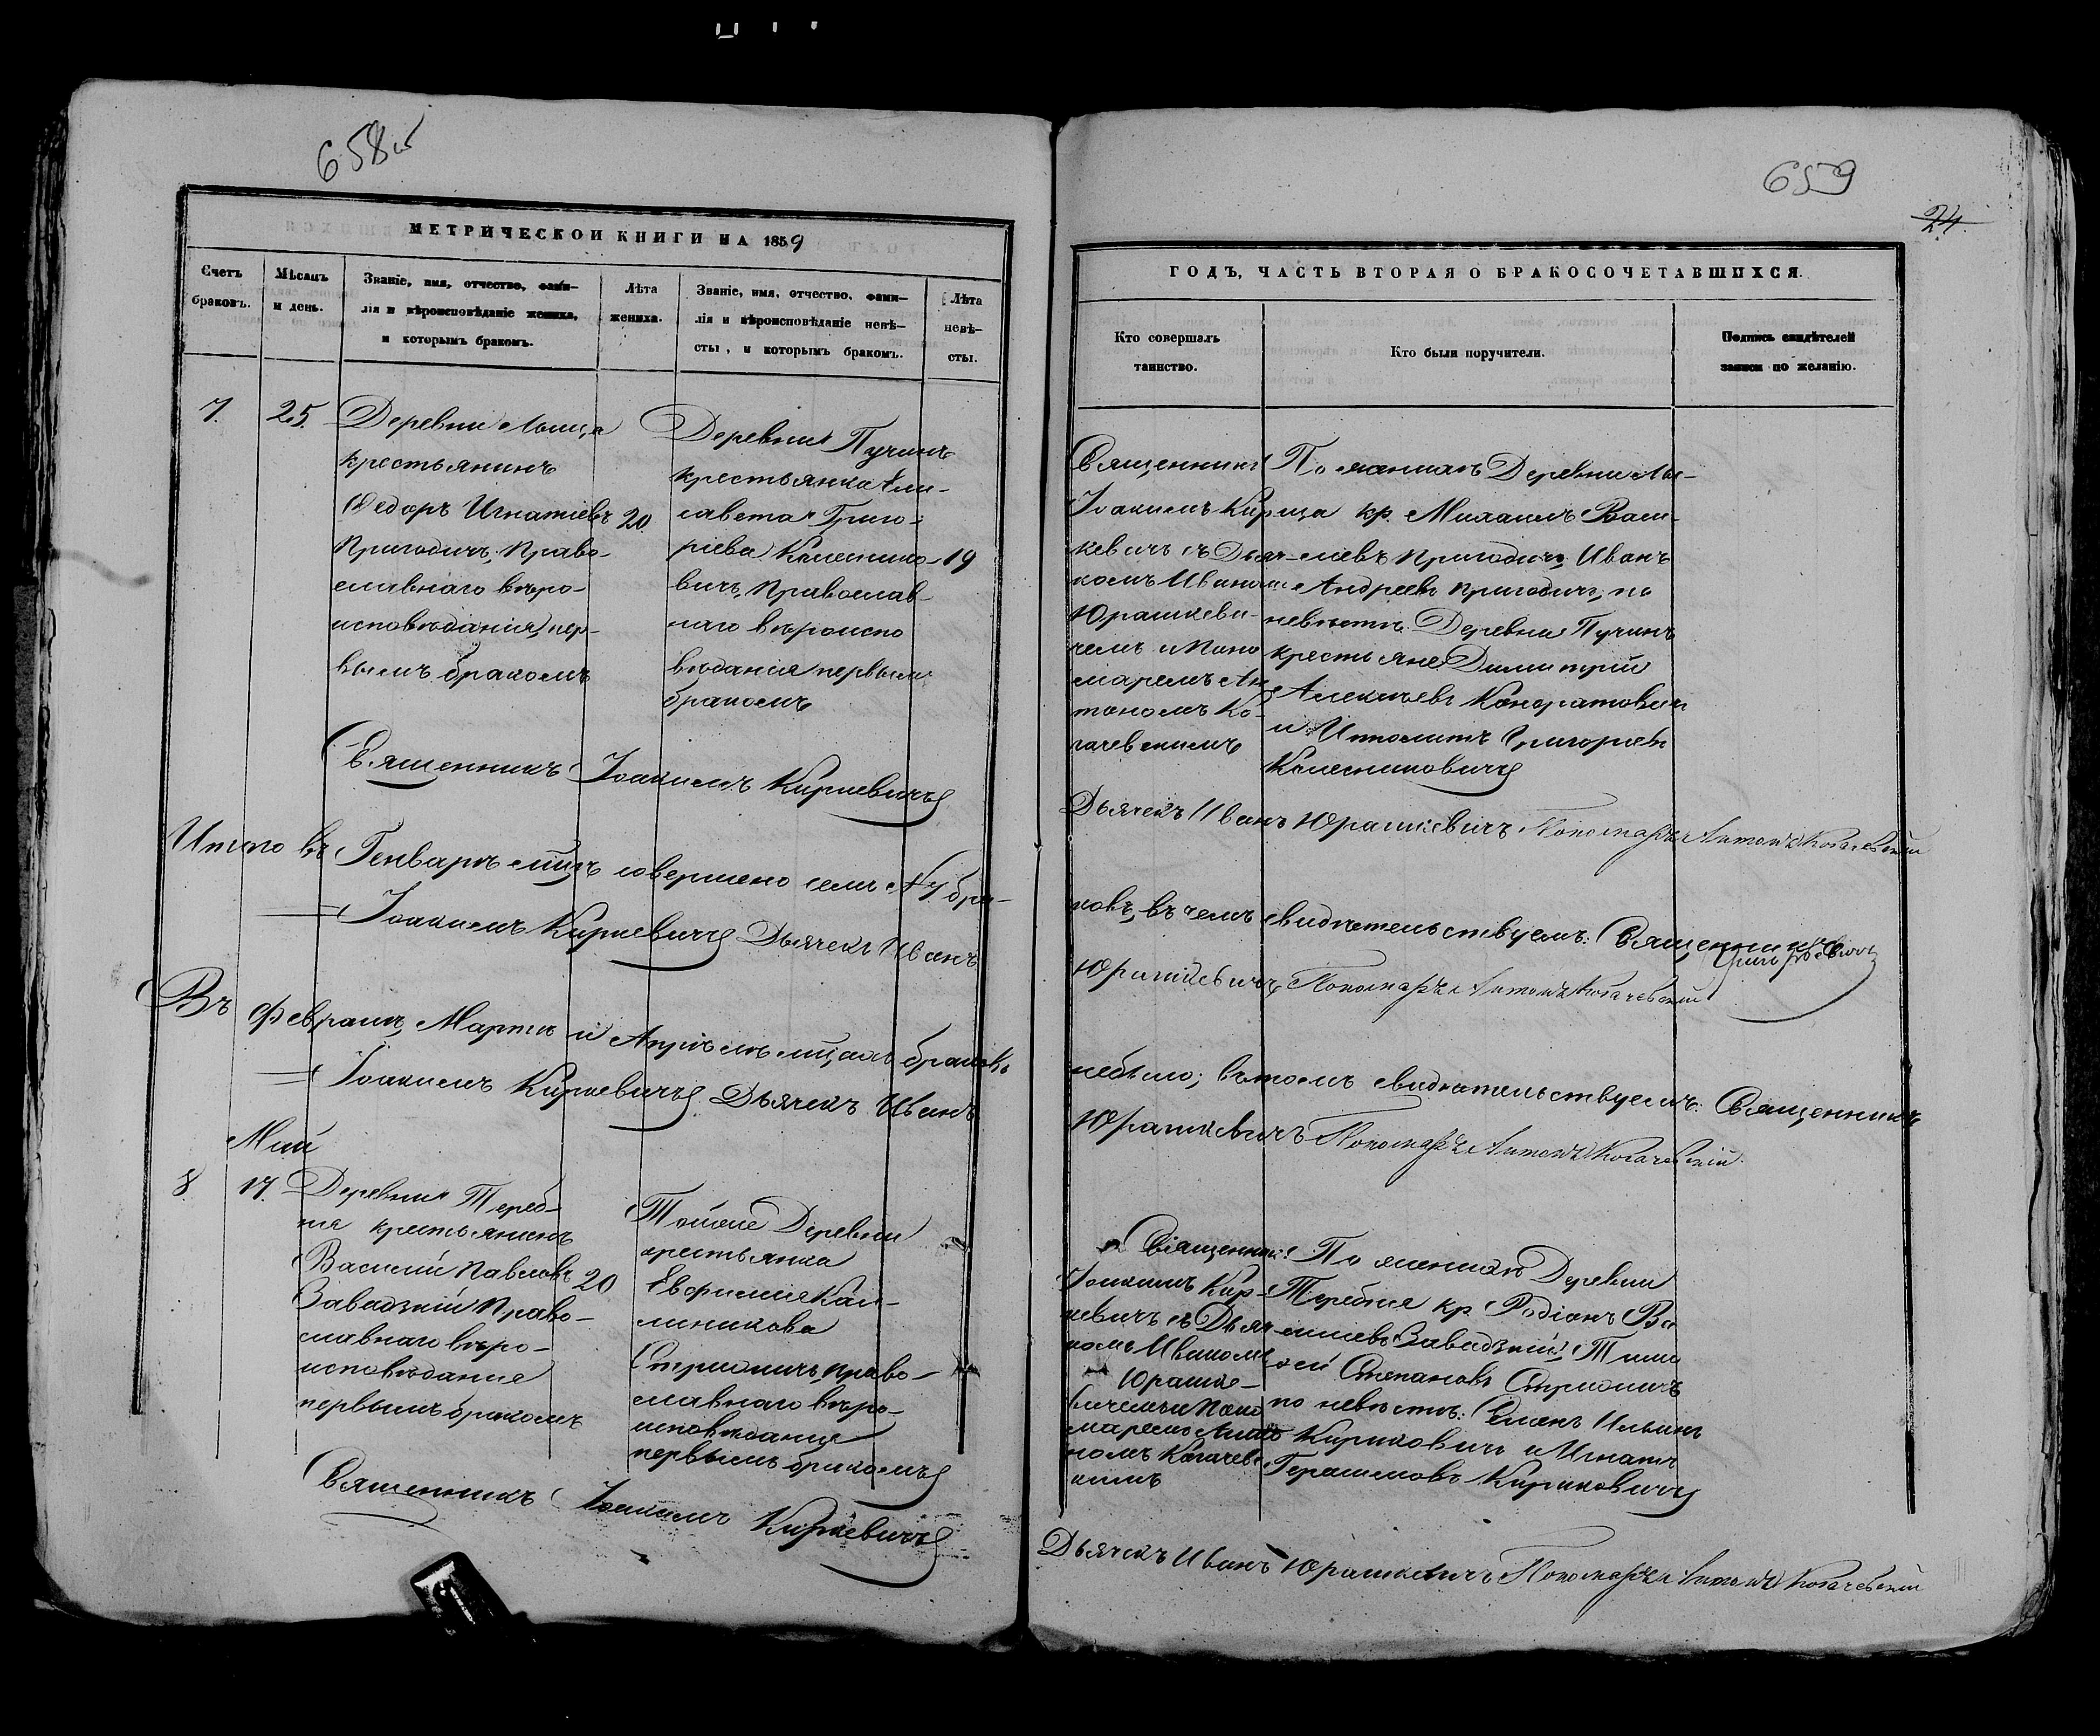 658
659
24
МЕТРИЧЕСКОЙ КНИГИ НА 1859
Счетъ
браковъ.
Мѣсяцъ
и день.
Званіе, имя, отчество, фами-
лія и вѣроисповѣданіе жениха,
и которымъ бракомъ.
Лѣта
жениха.
Званіе, имя, отчество, фами-
лія и вѣроисповѣданіе невѣ-
сты, и которымъ бракомъ.
Лѣта
невѣ-
сты.
7.
25.
Деревни
крестьянинъ
Ѳедоръ Игнатіевъ
Пригодичъ, Право-
славнаго вѣро-
исповѣданія, пер-
вымъ бракомъ
20
Деревни Пучинъ
крестьянка Ели-
савета Григо-
ріева Колеснико-
вичъ, Православ-
наго вѣроиспо
вѣданія первымъ
бракомъ
19
Священникъ Іоакимъ Киркевичъ
Итого въ Генварѣ мцѣ совершено семь №7 бра-
Іоакимъ Киркевичъ Дьячекъ Иванъ
Въ Февралѣ, Мартѣ и Апрѣлѣ мцахъ браковъ
Іоакимъ Киркевичъ Дьячекъ Иванъ
Май
8
17.
Деревни Тереб-
ня крестьянинъ
Василій Павловъ
Завадзкій Право-
славнаго вѣро-
исповѣданія
первымъ бракомъ
20
Тойже Деревни
крестьянка
Евфимія Кал-
линикова
право-
славнаго вѣро-
исповѣданія
первымъ бракомъ
Священникъ Іоакимъ Киркевичъ
ГОДЪ, ЧАСТЬ ВТОРАЯ О БРАКОСОЧЕТАВШИХСЯ.
Кто совершалъ
таинство.
Кто были поручители.
Подпись свидѣтелей
записи по желанію.
Священникъ
Іоакимъ Кир
кевичъ съ Дьяч-
комъ Иваномъ
Юрашкеви-
чемъ и Поно
маремъ Ан
тономъ Ко-
гачевскимъ
По женихѣ Деревни Лы-
ща кр. Михаилъ Васи-
ліевъ Пригодичъ, Иванъ
Андреевъ Пригодичъ, по
невѣстѣ Деревни Пучинъ
крестьяне Димитрій
Алексѣевъ Кондратовичъ
и Ипполитъ Григоріевъ
Колесниковичъ
Дьячекъ Иванъ Юрашкевичъ Пономарь Антонъ Когачевскій
ковъ, въ чемъ свидѣтельствуемъ: Священникъ
Юрашкевичъ, Пономарь Антонъ Когачевскій
небыло; въ томъ свидѣтельствуемъ: Священникъ
Юрашкевичъ Пономарь Антонъ Когачевскій.
Священникъ
Іоакимъ Кир-
кевичъ съ Дьяч
комъ Иваномъ
Юрашке-
вичемъ и Поно
маремъ Анто
номъ Когачевс
кимъ
По женихѣ Деревни
Теребня кр. Родіонъ Ва
силіевъ Завадзкій, Тимо
ѳей Степановъ
по невѣстѣ: Семенъ Ильинъ
Кириковичъ и Игнатъ
Герасимовъ Кириковичъ
Дьячекъ Иванъ Юрашкевичъ Пономарь Антонъ Когачевскій